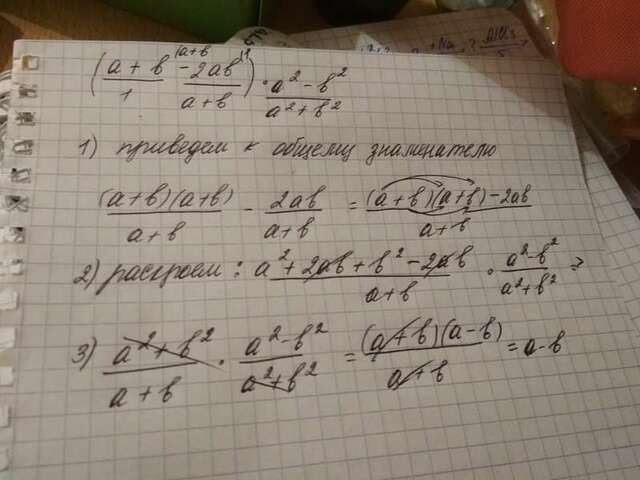 (a+b/1 - 2ab/a+b) · a²-b²/a²+b²
1) приведем к общему знаменателю
(a+b)(a+b)/a+b - 2ab/a+b = (a+b)(a+b)-2ab/a+b
2) раскроем: a²+2ab+b²-2ab/a+b · a²-b²/a²+b² =
3) a²+b²/a+b · a²-b²/a²+b² = (a+b)(a-b)/a+b = a-b